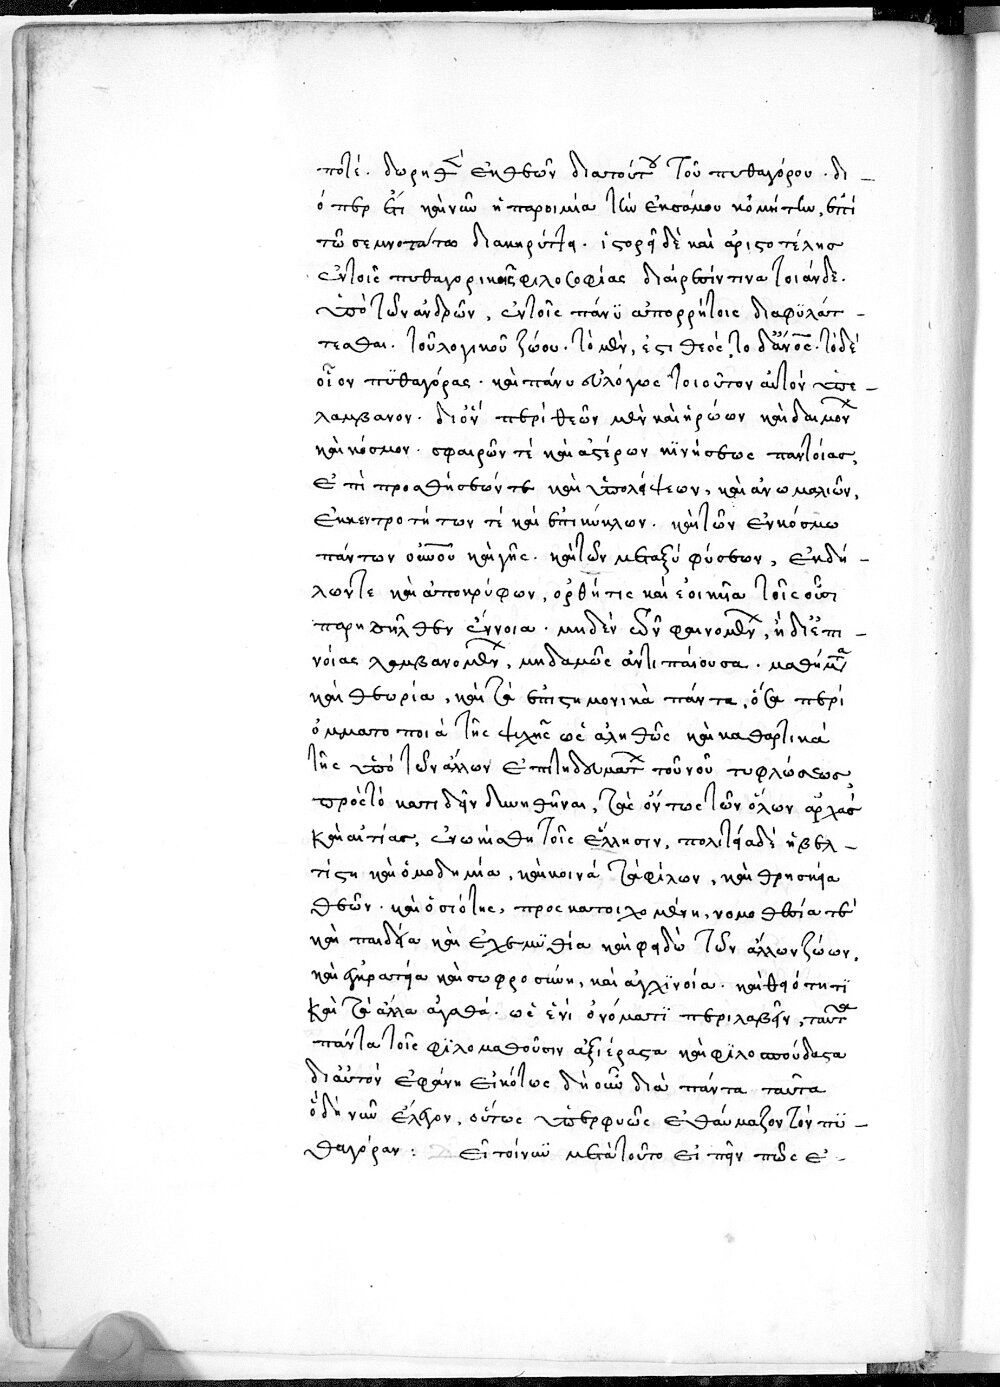 ποτέ. δωρηθεὶς ἐκ θεῶν διὰ τούτου τοῦ πυθαγόρου. δι –
ό περ ἔτι καὶ νῦν ἡ παροιμία τὸν ἐκ σάμου κομήτην, ἐπὶ
τῶ σεμνοτάτω διακηρύττει. ἱστορεῖ δὲ καὶ ἀριστοτέλης
ἐν τοῖς πυθαγορικῆς φιλοσοφίας διαίρεσίν τινα τοιάνδε.
ὑπὸ τῶν ἀνδρῶν, ἐν τοῖς πάνυ ἀπορρήτοις διαφυλάτ –
τεσθαι. τοῦ λογικοῦ ζώου. τὸ μέν, ἐστι θεός, τὸ δ' ἄνος. τὸ δὲ
οἷον πυθαγόρας. καὶ πάνυ εὐλόγως τοιοῦτον αὐτὸν ὑπε –
λάμβανον. δι' οὗ περὶ θεῶν μὲν καὶ ἡρώων καὶ δαιμόνων
καὶ κόσμου. σφαιρῶν τὲ καὶ ἀστέρων κινήσεως παντοίας,
ἐπιπροσθήσεών τε καὶ ὑπολείψεων, καὶ ἀνωμαλιῶν,
ἐκκεντροτήτων τὲ καὶ ἐπικύκλων. καὶ τῶν ἐν κόσμω
πάντων οὐνοῦ καὶ γῆς. καὶ τῶν μεταξὺ φύσεων, ἐκδή –
λων τε καὶ ἀποκρύφων, ὀρθή τις καὶ ἐοικυῖα τοῖς οὖσι
παρῆλθεν ἔννοια. μηδενὶ τῶν φαινομένων, ἢ δι' ἐπι –
νοίας λαμβανομένων, μηδαμῶς ἀντιπαίουσα. μαθήματα
καὶ θεωρία, καὶ τὰ ἐπιστημονικὰ πάντα, ὅσα περὶ
ὀμματοποιὰ τῆς ψυχῆς ὡς ἀληθῶς καὶ καθαρτικὰ
τῆς ὑπὸ τῶν ἄλλων ἐπιτηδευμάτων τοῦ νοῦ τυφλώσεως,
πρὸς τὸ κατιδεῖν δυνηθῆναι, τὰς ὄντως τῶν ὅλων ἀρχὰς
καὶ αἰτίας, ἐνωκίσθη τοῖς ἕλλησιν, πολιτεία δὲ ἡ βελ –
τίστη καὶ ὁμοδημία, καὶ κοινὰ τὰ φίλων, καὶ θρησκεία
θεῶν. καὶ ὁσιότης, πρὸς κατοιχομένη, νομοθεσία τὲ
καὶ παιδεία καὶ ἐχεμυθία καὶ φειδὼ τῶν ἄλλων ζώων,
καὶ ἐγκράτεια καὶ σωφροσύνη, καὶ ἀγχίνοια. καὶ θειότητι
καὶ τὰ ἄλλα ἀγαθά. ὡς ἑνὶ ὀνόματι περιλαβεῖν, ταῦτα
πάντα τοῖς φιλομαθοῦσιν ἀξιέραστα καὶ φιλοσπούδαστα
δι' αὐτὸν ἐφάνη εἰκότως δὴ οὖν διὰ πάντα ταῦτα
ὃ δὴ νῦν ἔλεγον, οὕτως ὑπερφυῶς ἐθαύμαζον τὸν πυ –
θαγόραν: εἰ τοίνυν μετὰ τοῦτο εἰπεῖν πῶς ἐ –